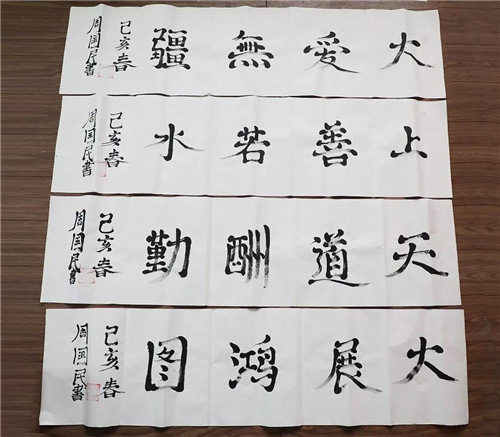 大愛無疆 己亥春 周国民書
上善若水 己亥春 周国民書
天道酬勤 己亥春 周国民書
大展鴻图 己亥春 周国民書